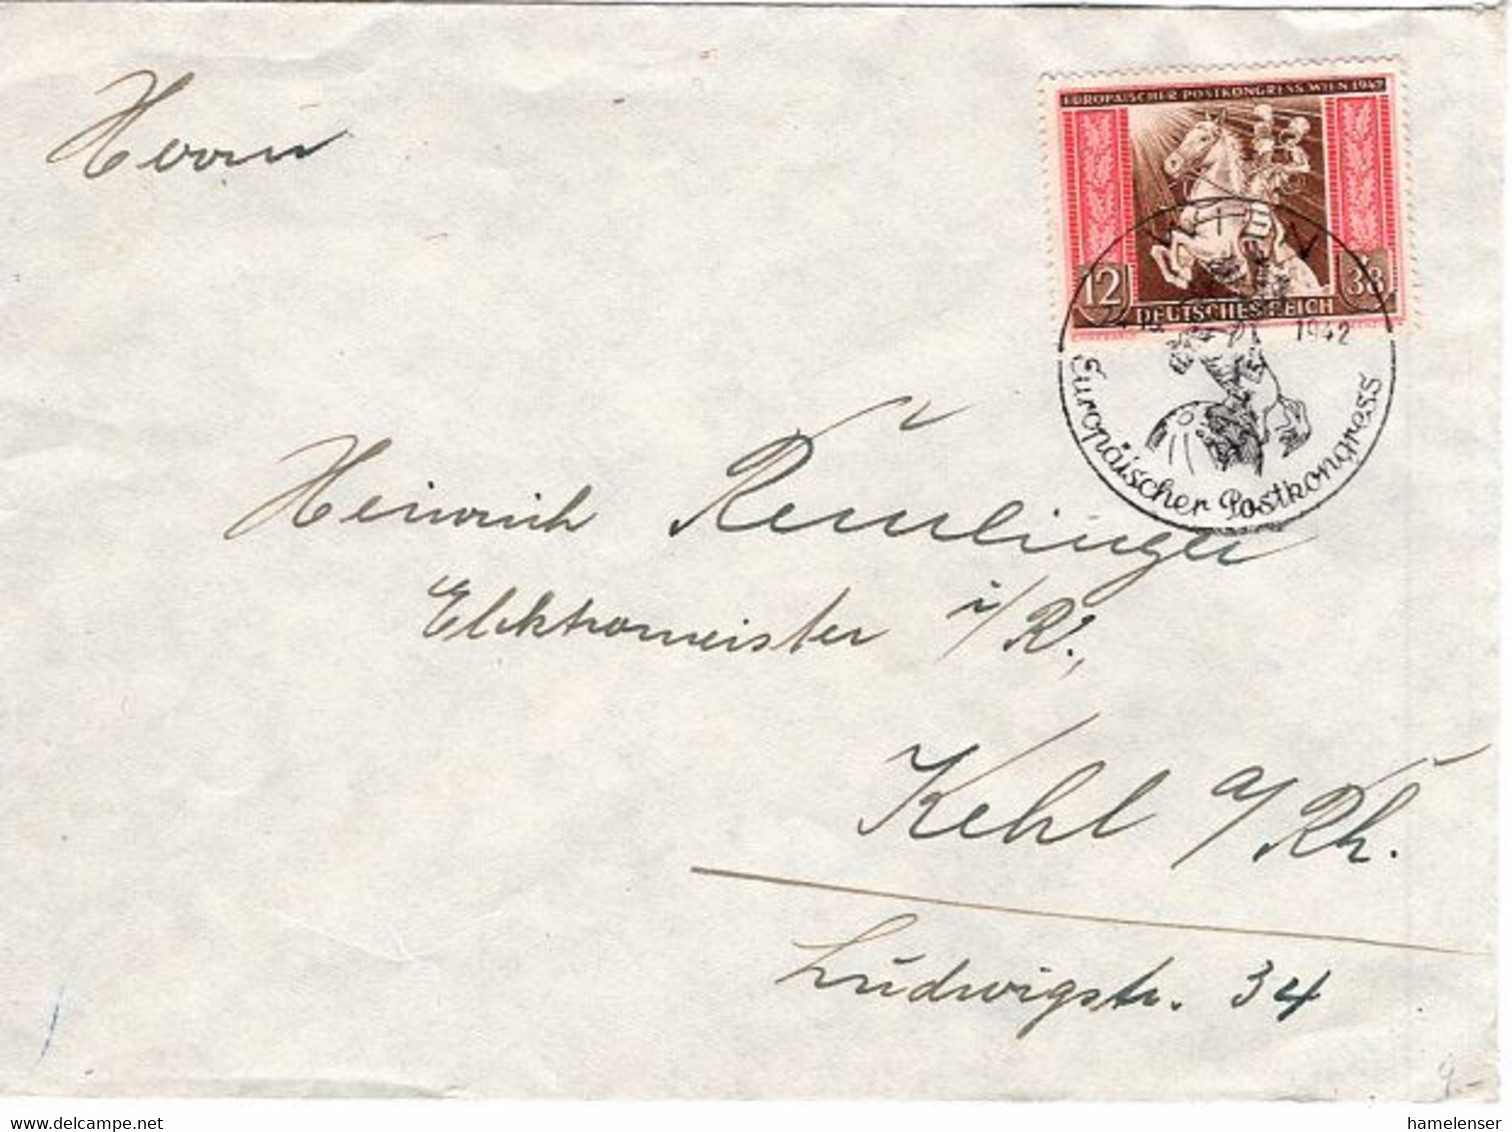 Herrn
EUROPÄISCHER POSTKONGRESS WIEN 1942
12 38
DEUTSCHES REICH
WIEN
1942
Europäischer Postkongress
Heinrich Remlinger
Elektromeister i/R.,
Kehl a/Rh.
Ludwigstr. 34
9.-
www.delcampe.net
hamelenser